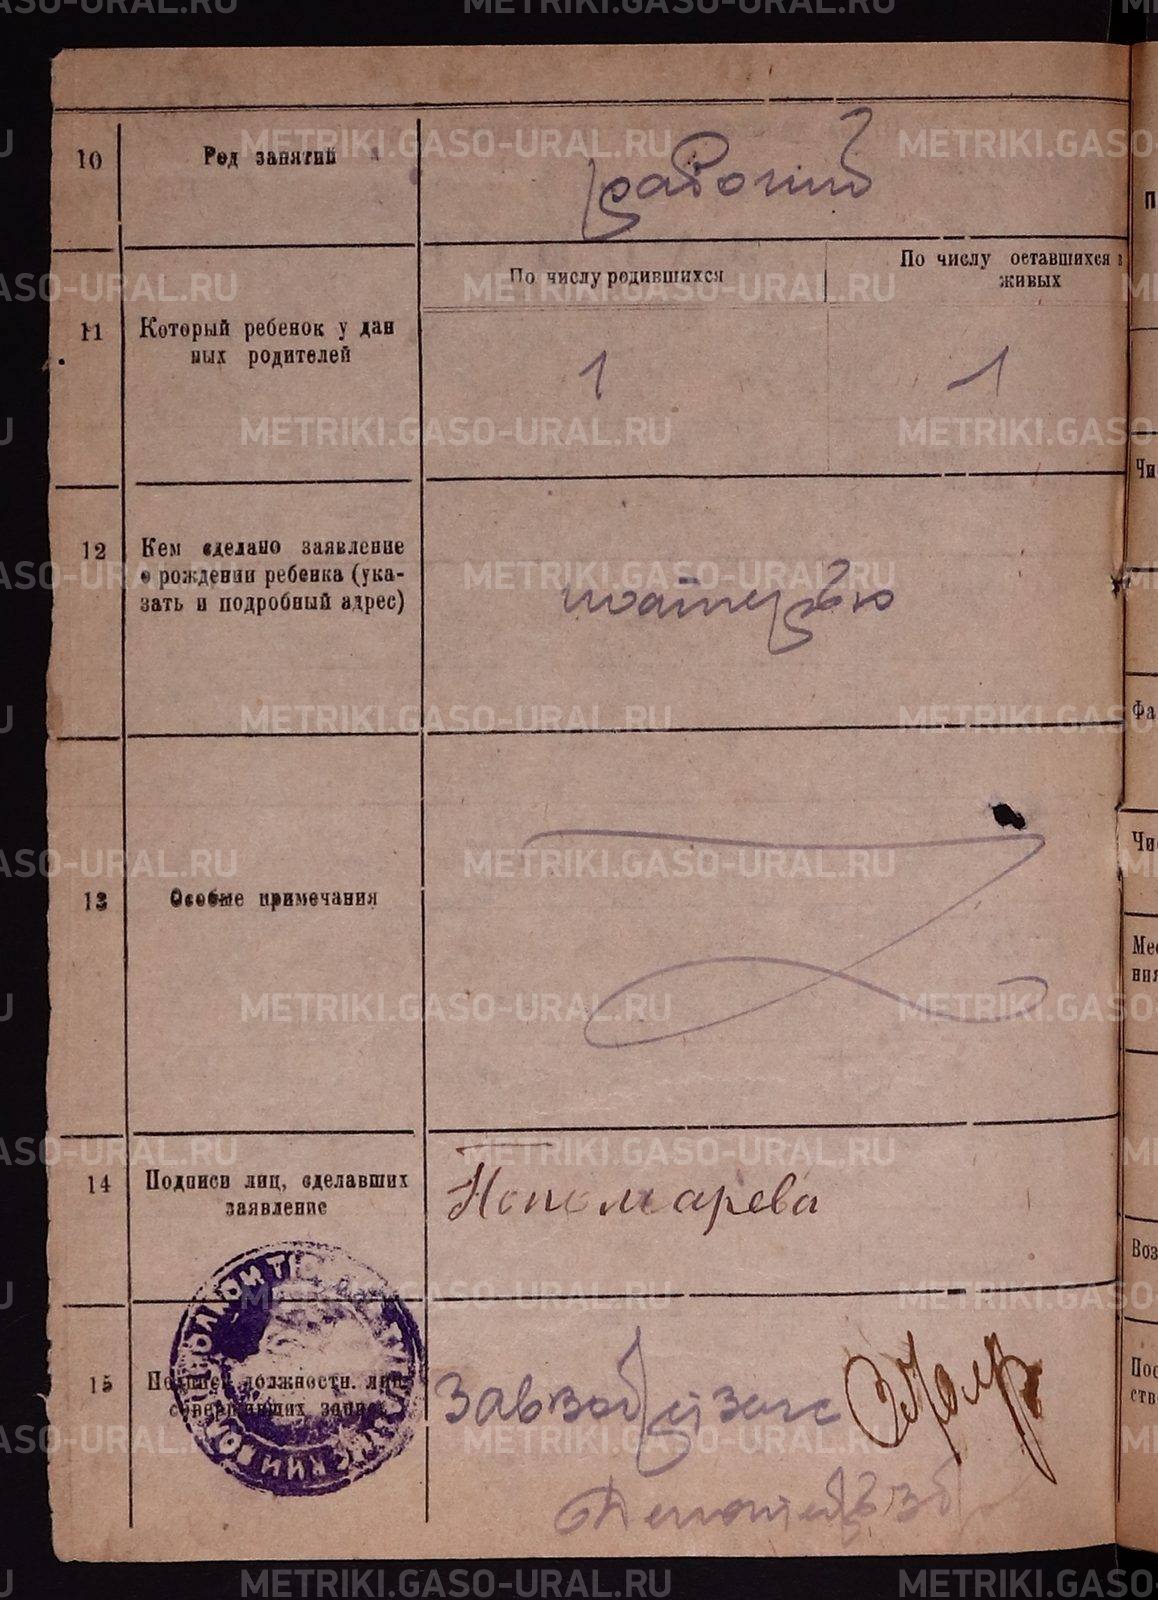 10 Род занятий рабочий
По числу родившихся
По числу оставшихся в
живых
11 Который ребенок у дан
ных родителей
1 1
12 Кем сделано заявление
о рождении ребенка (ука-
зать и подробный адрес)
матерью
13 Особые примечания
14 Подписи лиц, сделавших
заявление
Пономарева
15 Подписи должностн. лиц,
совершивших запись
METRIKI.GASO-URAL.RU